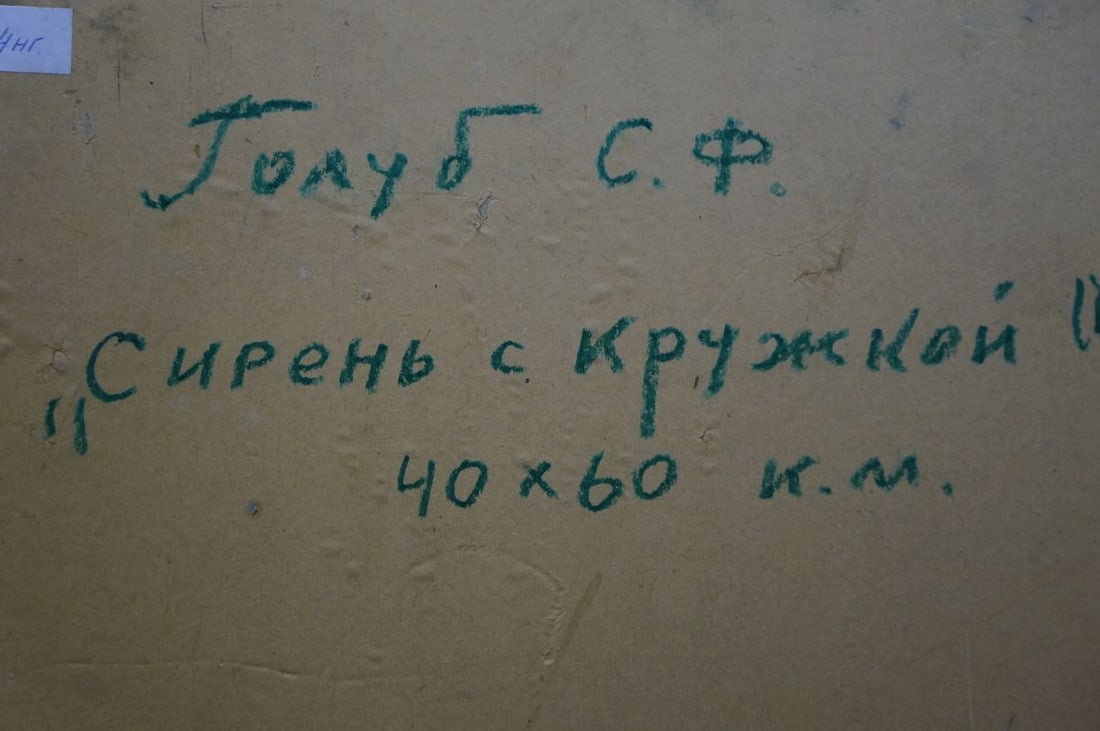 Голуб С.Ф.
„Сирень с кружкой"
40 x 60 к.м.